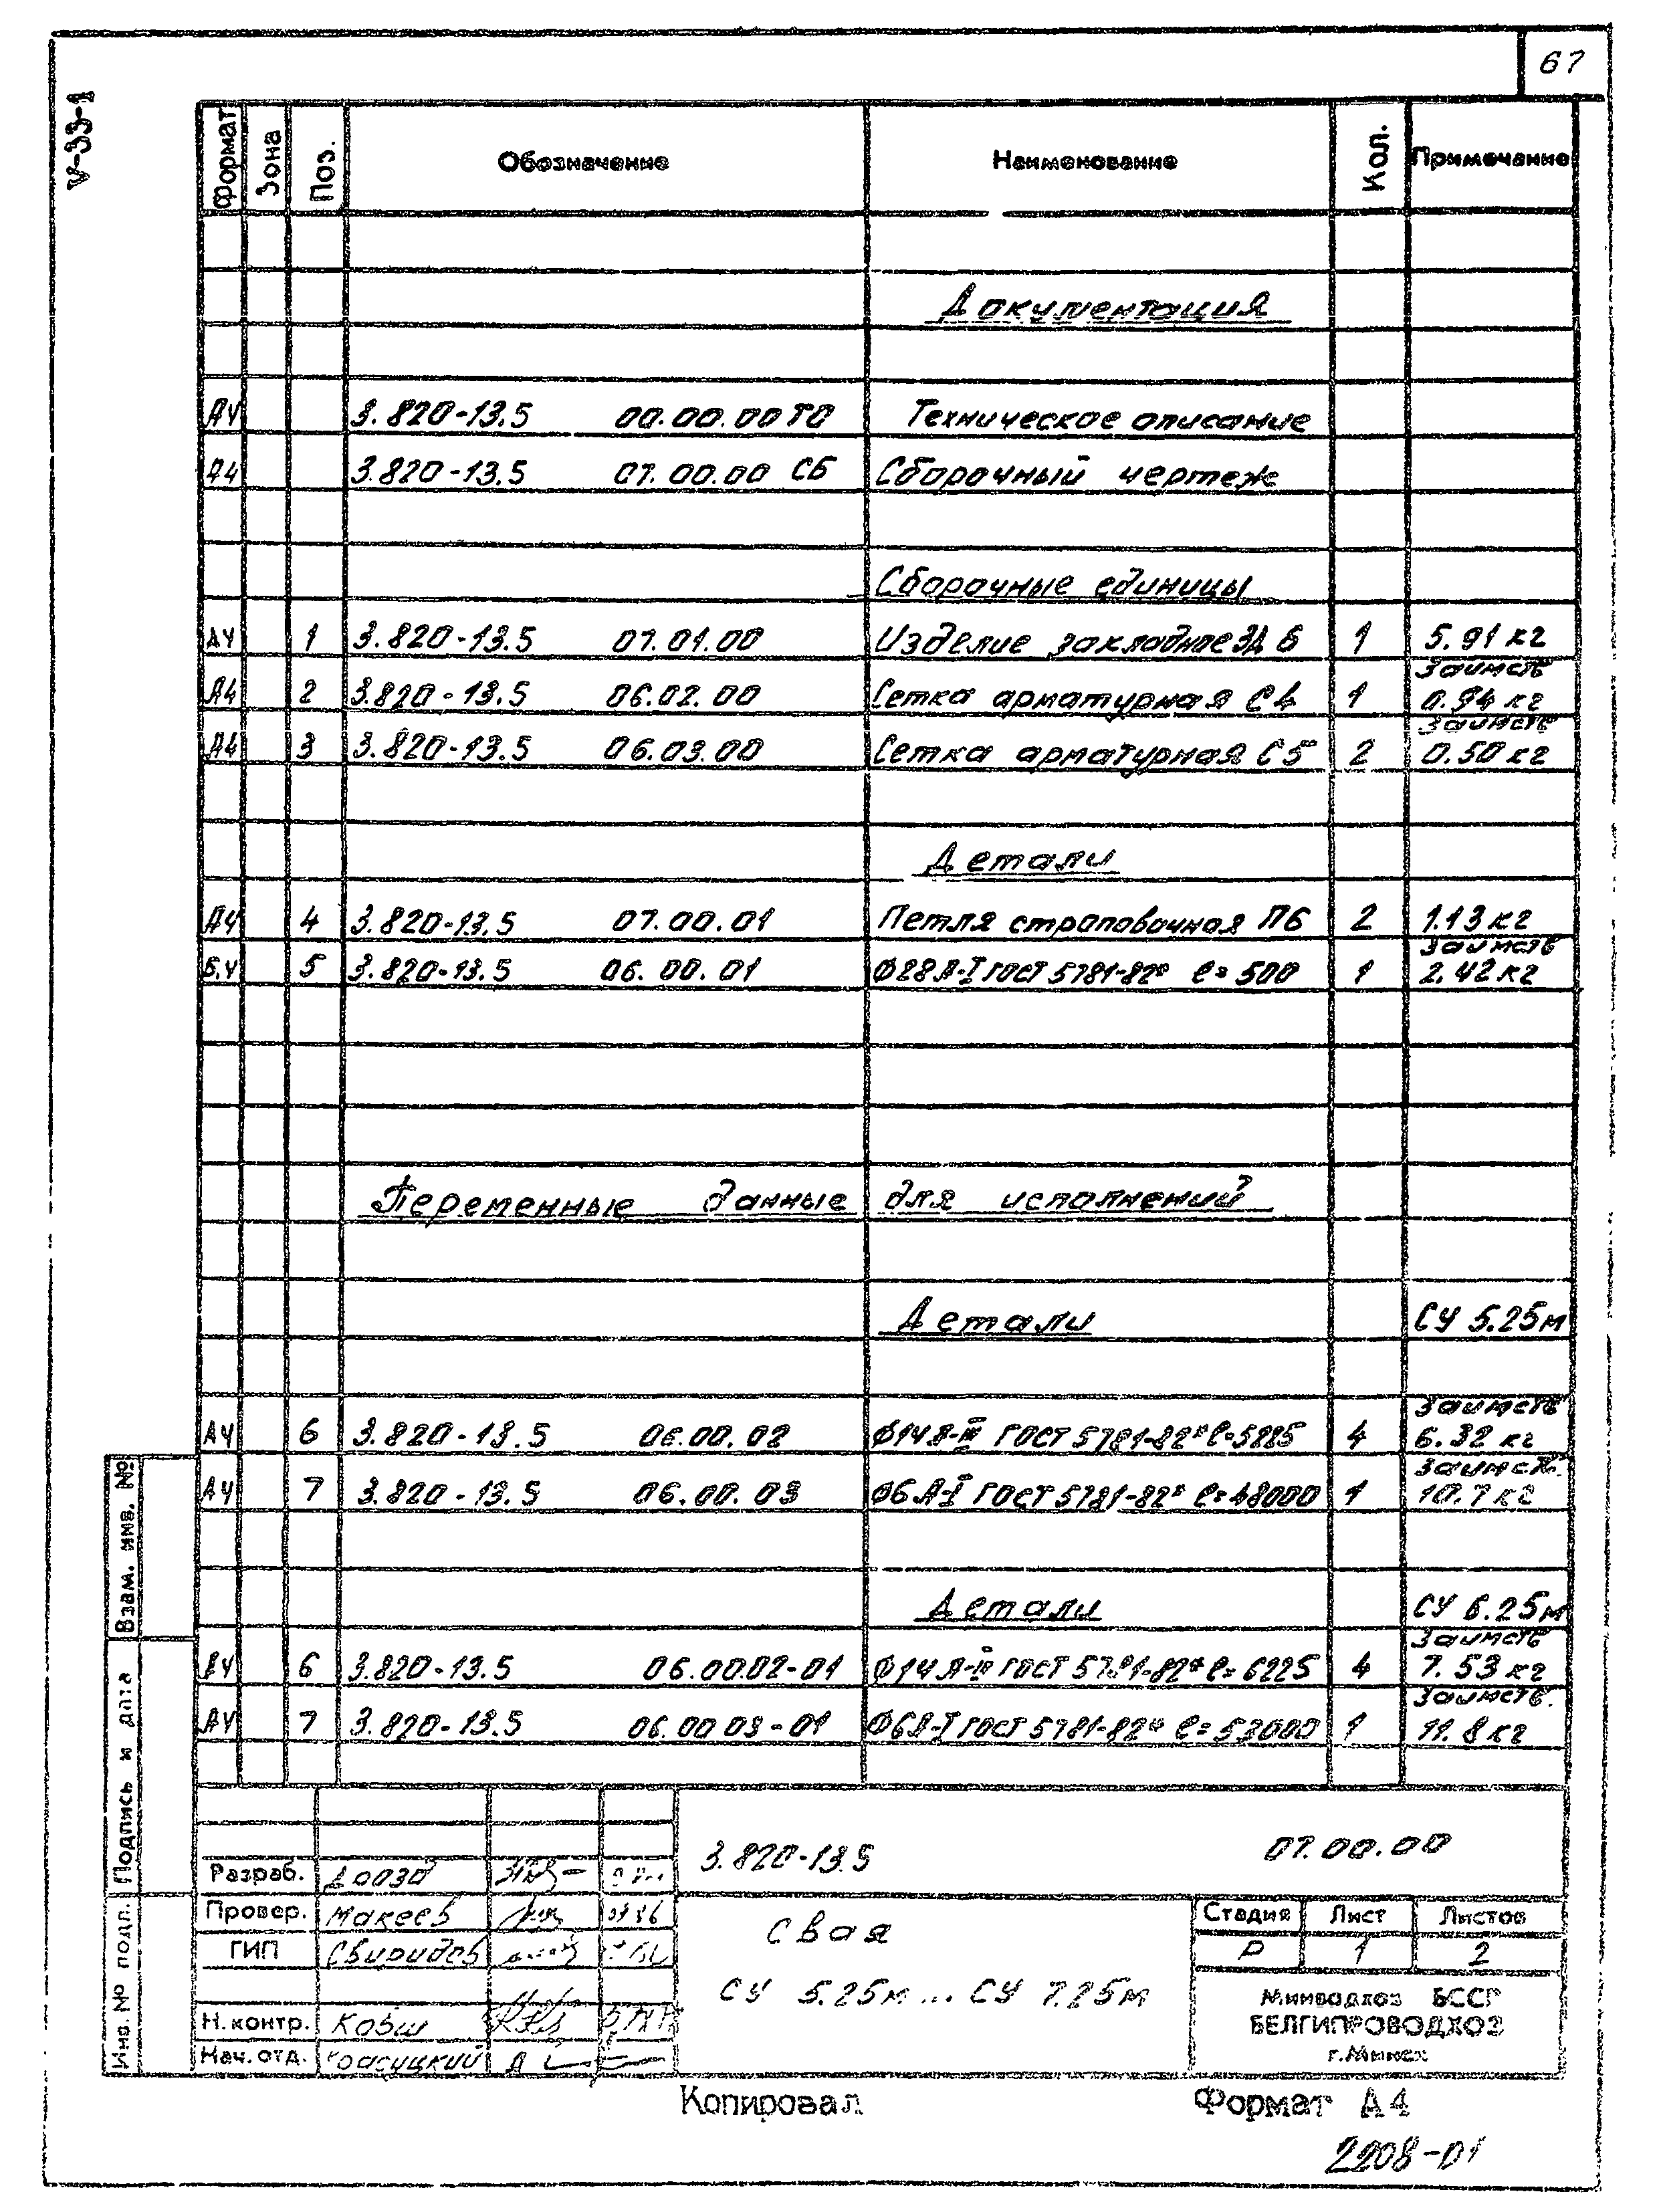 67
V-33-1
Формат Зона Поз. Обозначение Наименование Кол. Примечание
Документация
А4 3.820-13.5 00.00.00 ТО Техническое описание
А4 3.820-13.5 07.00.00 СБ Сборочный чертеж
Сборочные единицы
А4 1 3.820-13.5 07.01.00 Изделие закладное ЗД 6 1 5.91 кг
Заимств
А4 2 3.820-13.5 06.02.00 Сетка арматурная С4 1 0.94 кг
Заимств
А4 3 3.820-13.5 06.03.00 Сетка арматурная С5 2 0.50 кг
Детали
А4 4 3.820-13.5 07.00.01 Петля строповочная П6 2 1.13 кг
Заимств
Б.Ч 5 3.820-13.5 06.00.01 Ф28А-I ГОСТ 5781-82* ℓ=500 1 2.42 кг
Переменные данные для исполнений
Детали СУ 5.25м
Заимств
А4 6 3.820-13.5 06.00.02 Ф14А-III ГОСТ 5781-82* ℓ=5225 4 6.32 кг
Заимств.
А4 7 3.820-13.5 06.00.03 Ф6А-I ГОСТ 5781-82* ℓ=48000 1 10.7 кг
Детали СУ 6.25м
Заимств
6 3.820-13.5 06.00.02-01 Ф14А-III ГОСТ 5781-82* ℓ=6225 4 7.53 кг
Заимств.
А4 7 3.820-13.5 06.00.03-01 Ф6А-I ГОСТ 5781-82* ℓ=53000 1 11.8 кг
3.820-13.5 07.00.00
Разраб.
Провер. Макеев
ГИП Свиридов
Н. контр. Ковш
Нач. отд.
Свая
СУ 5.25м ... СУ 7.25м
Стадия Лист Листов
Р 1 2
Минводхоз БССР
БЕЛГИПРОВОДХОЗ
г. Минск
Инв. № подл. Подпись и дата Взам. инв. №
Копировал Формат А4
2208-01